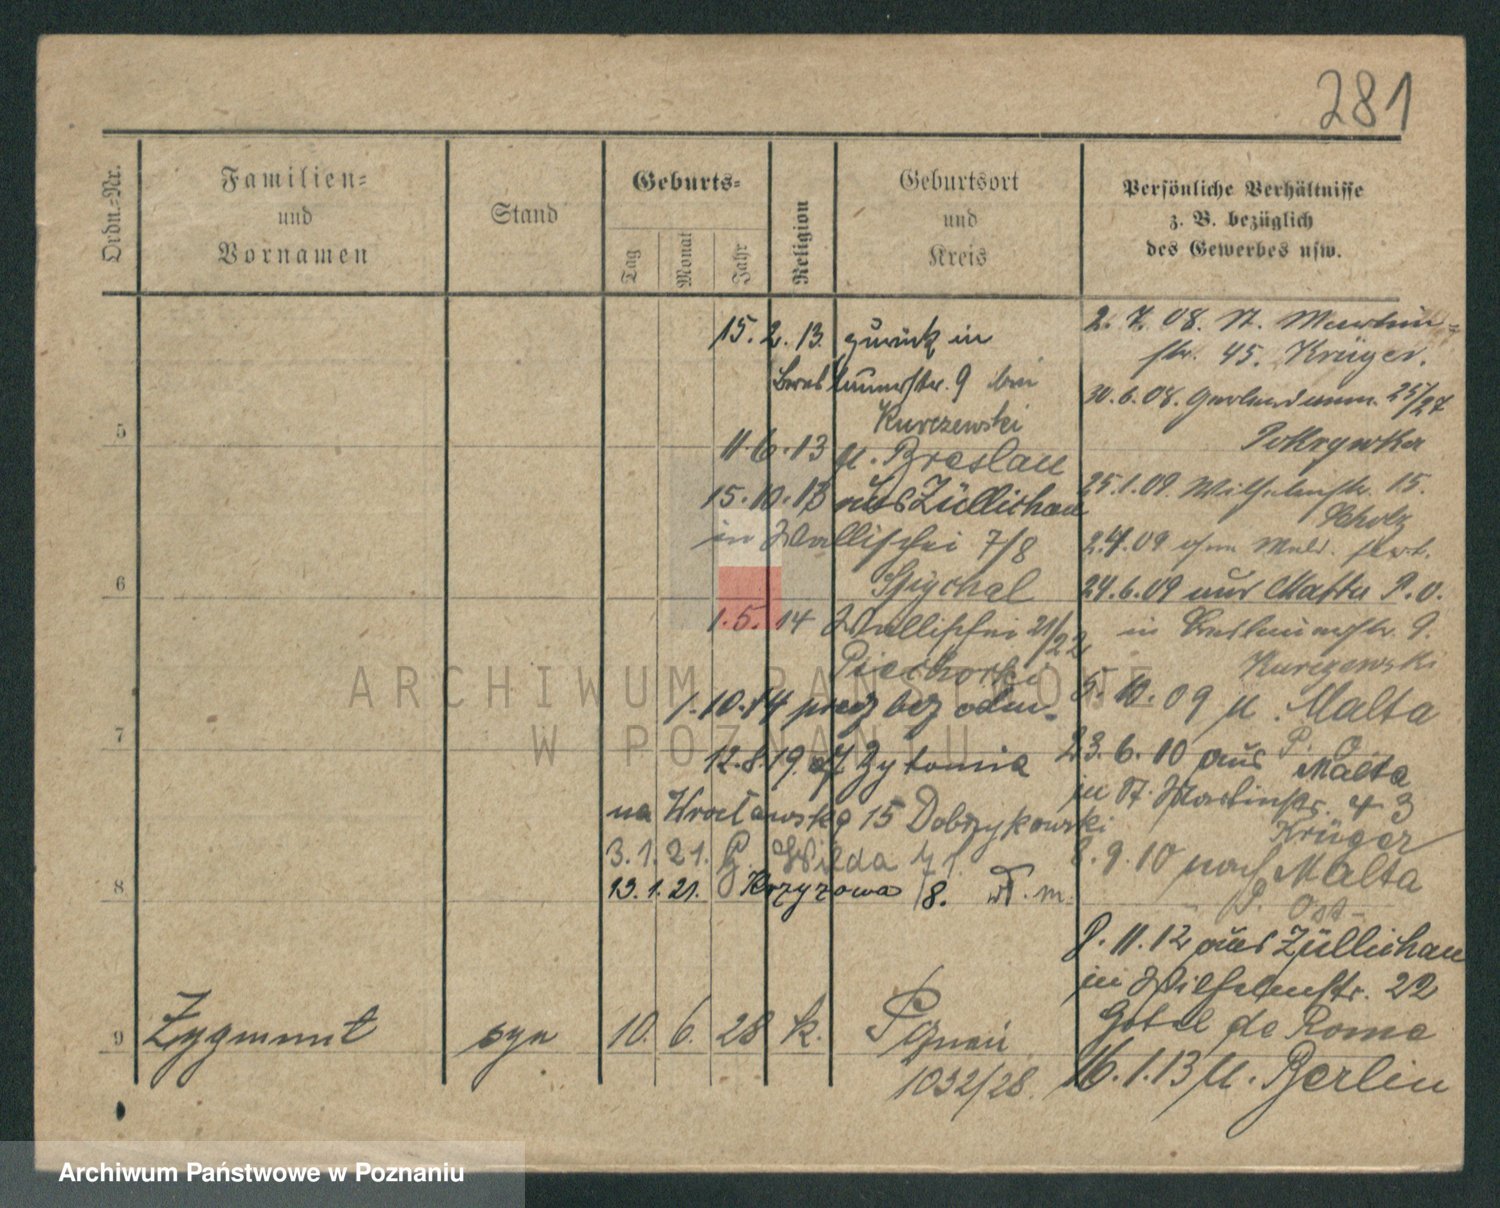 281
Ordn.-Nr.
Familien-
und
Vornamen
Stand
Geburts-
Tag
Monat
Jahr
Religion
Geburtsort
und
Kreis
Persönliche Verhältnisse
z. B. bezüglich
des Gewerbes usw.
15.2.13. zurück in
Breslauerstr. 9 bei
Kurczewski
11.6.13 n. Breslau
15.10.13 aus Züllichau
in Wallischei 7/8
1.5.14 Wallischei 21/22
1.10.14 precz bez odm.
12.8.19. Zytomia
na Wrocławską 15 Dobrzykowski
3.1.21. G. Wilda 71.
13.1.21. Krzyżowa 8. m.
5
6
7
8
9
Zygmunt syn 10. 6. 28 k.
1032/28.
2.7.08. St. Martin-
str. 45. Krüger.
30.6.08. 25/27
Pokrywka
25.1.09. Wilhelmstr. 15.
Scholz
2.4.09
24.6.09 aus Malta P.O.
in Breslauerstr. 9.
Kurczewski
5.10.09 n. Malta
P. O.
23.6.10 aus Malta
in St. Martinstr. 43
Krüger
8.9.10 nach Malta
P. Ost-
8.11.12 aus Züllichau
in Wilhelmstr. 22
Hotel de Rome
16.1.13 n. Berlin
ARCHIWUM PAŃSTWOWE
W POZNANIU
Archiwum Państwowe w Poznaniu